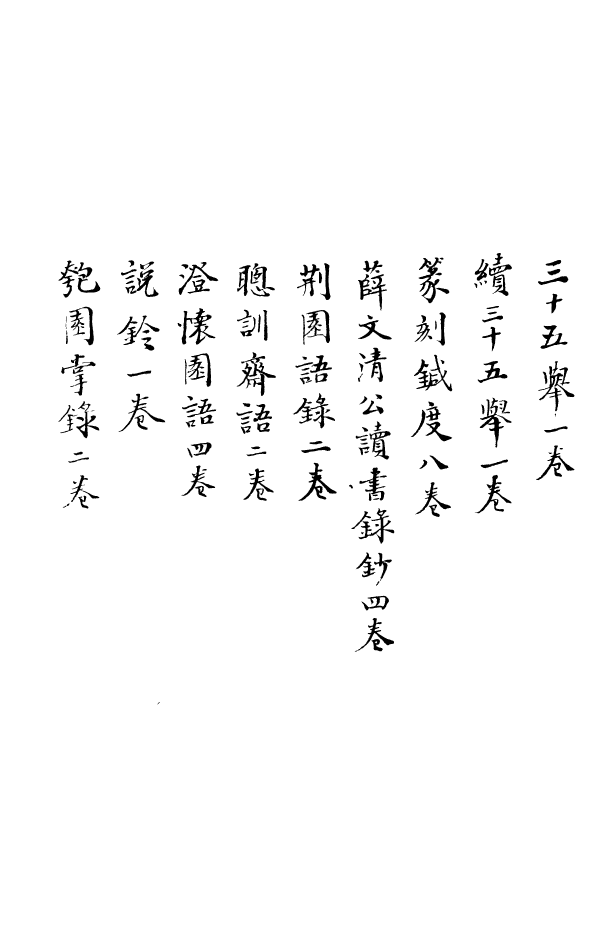 三十五舉一卷
續三十五舉一卷
篆刻鍼度八卷
薛文清公讀書錄鈔四卷
荆園語錄二卷
聰訓齋語二卷
澄懷園語四卷
説鈴一卷
匏園掌錄二卷